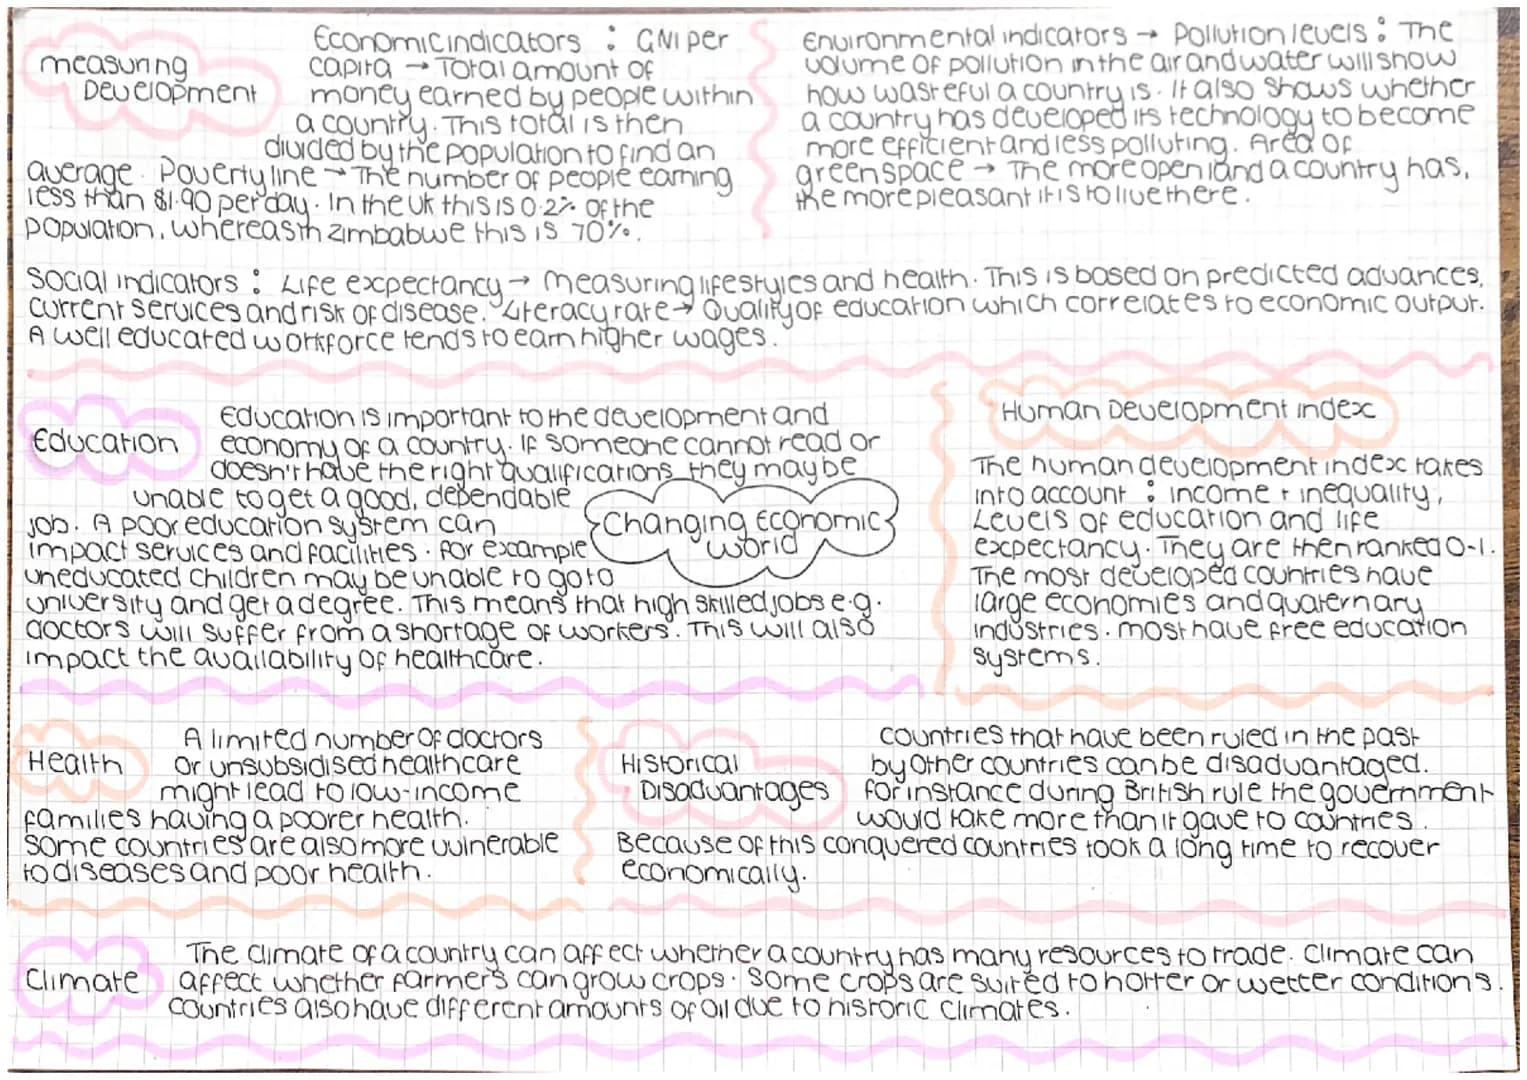 Measuring
Development
Economic indicators : GNI per
capita → Total amount of
money earned by people within
a country. This total is then
divided by the population to find an
average. Poverty line → The number of people earning
less than $1.90 per day. In the UK this is 0.2% of the
population, whereas in Zimbabwe this is 70%.
Environmental indicators → Pollution levels : The
volume of pollution in the air and water will show
how wasteful a country is. It also shows whether
a country has developed its technology to become
more efficient and less polluting. Area of
greenspace → The more open land a country has,
the more pleasant it is to live there.
Social indicators : Life expectancy → Measuring lifestyles and health. This is based on predicted advances,
current services and risk of disease. Literacy rate → Quality of education which correlates to economic output.
A well educated workforce tends to earn higher wages.
Education
Education is important to the development and
economy of a country. If someone cannot read or
doesn't have the right qualifications, they may be
unable to get a good, dependable
job. A poor education system can
impact services and facilities. For example
uneducated children may be unable to go to
university and get a degree. This means that high skilled jobs e.g.
doctors will suffer from a shortage of workers. This will also
impact the availability of healthcare.
Changing Economic
World
Human Development index
The human development index takes
into account : income + inequality,
Levels of education and life
expectancy. They are then ranked 0-1.
The most developed countries have
large economies and quaternary
industries. Most have free education
systems.
Health
A limited number of doctors
or unsubsidised healthcare
might lead to low-income
families having a poorer health.
Some countries are also more vulnerable
to diseases and poor health.
Historical
Disadvantages
Countries that have been ruled in the past
by other countries can be disadvantaged.
For instance during British rule the government
would take more than it gave to countries.
Because of this conquered countries took a long time to recover
economically.
Climate
The climate of a country can affect whether a country has many resources to trade. Climate can
affect whether farmers can grow crops. Some crops are suited to hotter or wetter conditions.
Countries also have different amounts of oil due to historic climates.